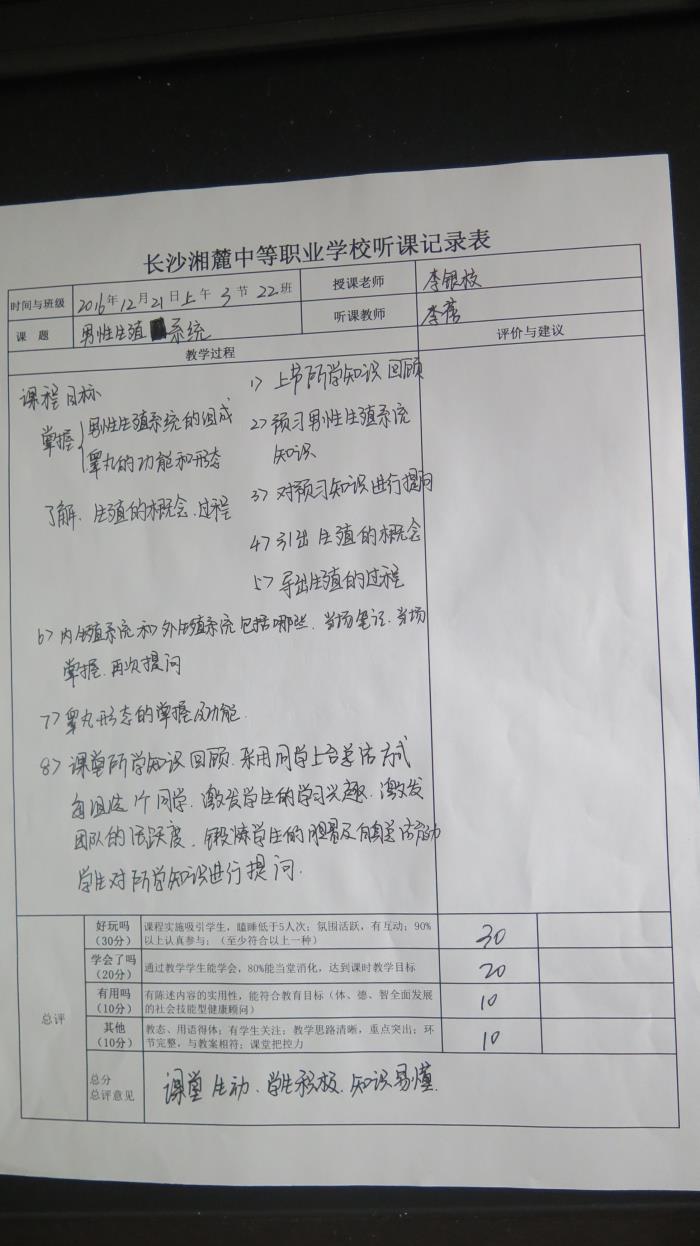 长沙湘麓中等职业学校听课记录表
时间与班级 2016年12月21日上午3节22班 授课老师 李银枝
课 题 男性生殖系统 听课教师 李蓓
教学过程 评价与建议
课程目标
掌握{男性生殖系统的组成
睾丸的功能和形态
了解、生殖的概念、过程
1> 上节所学知识回顾
2> 预习男性生殖系统
知识
3> 对预习知识进行提问
4> 引出生殖的概念
5> 导出生殖的过程
6> 内生殖系统和外生殖系统包括哪些、当场笔记、当场
掌握、再次提问
7> 睾丸形态的掌握及功能.
8> 课堂所学知识回顾、采用同学上台总结方式
每组选1个同学、激发学生的学习兴趣、激发
团队的活跃度、锻炼学生的胆量及
学生对所学知识进行提问.
总评
好玩吗（30分） 课程实施吸引学生，瞌睡低于5人次；氛围活跃，有互动；90% 30
以上认真参与；（至少符合以上一种）
学会了吗（20分） 通过教学学生能学会，80%能当堂消化，达到课时教学目标 20
有用吗（10分） 有陈述内容的实用性，能符合教育目标（体、德、智全面发展 10
的社会技能型健康顾问）
其他（10分） 教态、用语得体；有学生关注；教学思路清晰，重点突出；环 10
节完整，与教案相符；课堂把控力
总分
总评意见 课堂生动、学生积极、知识易懂.